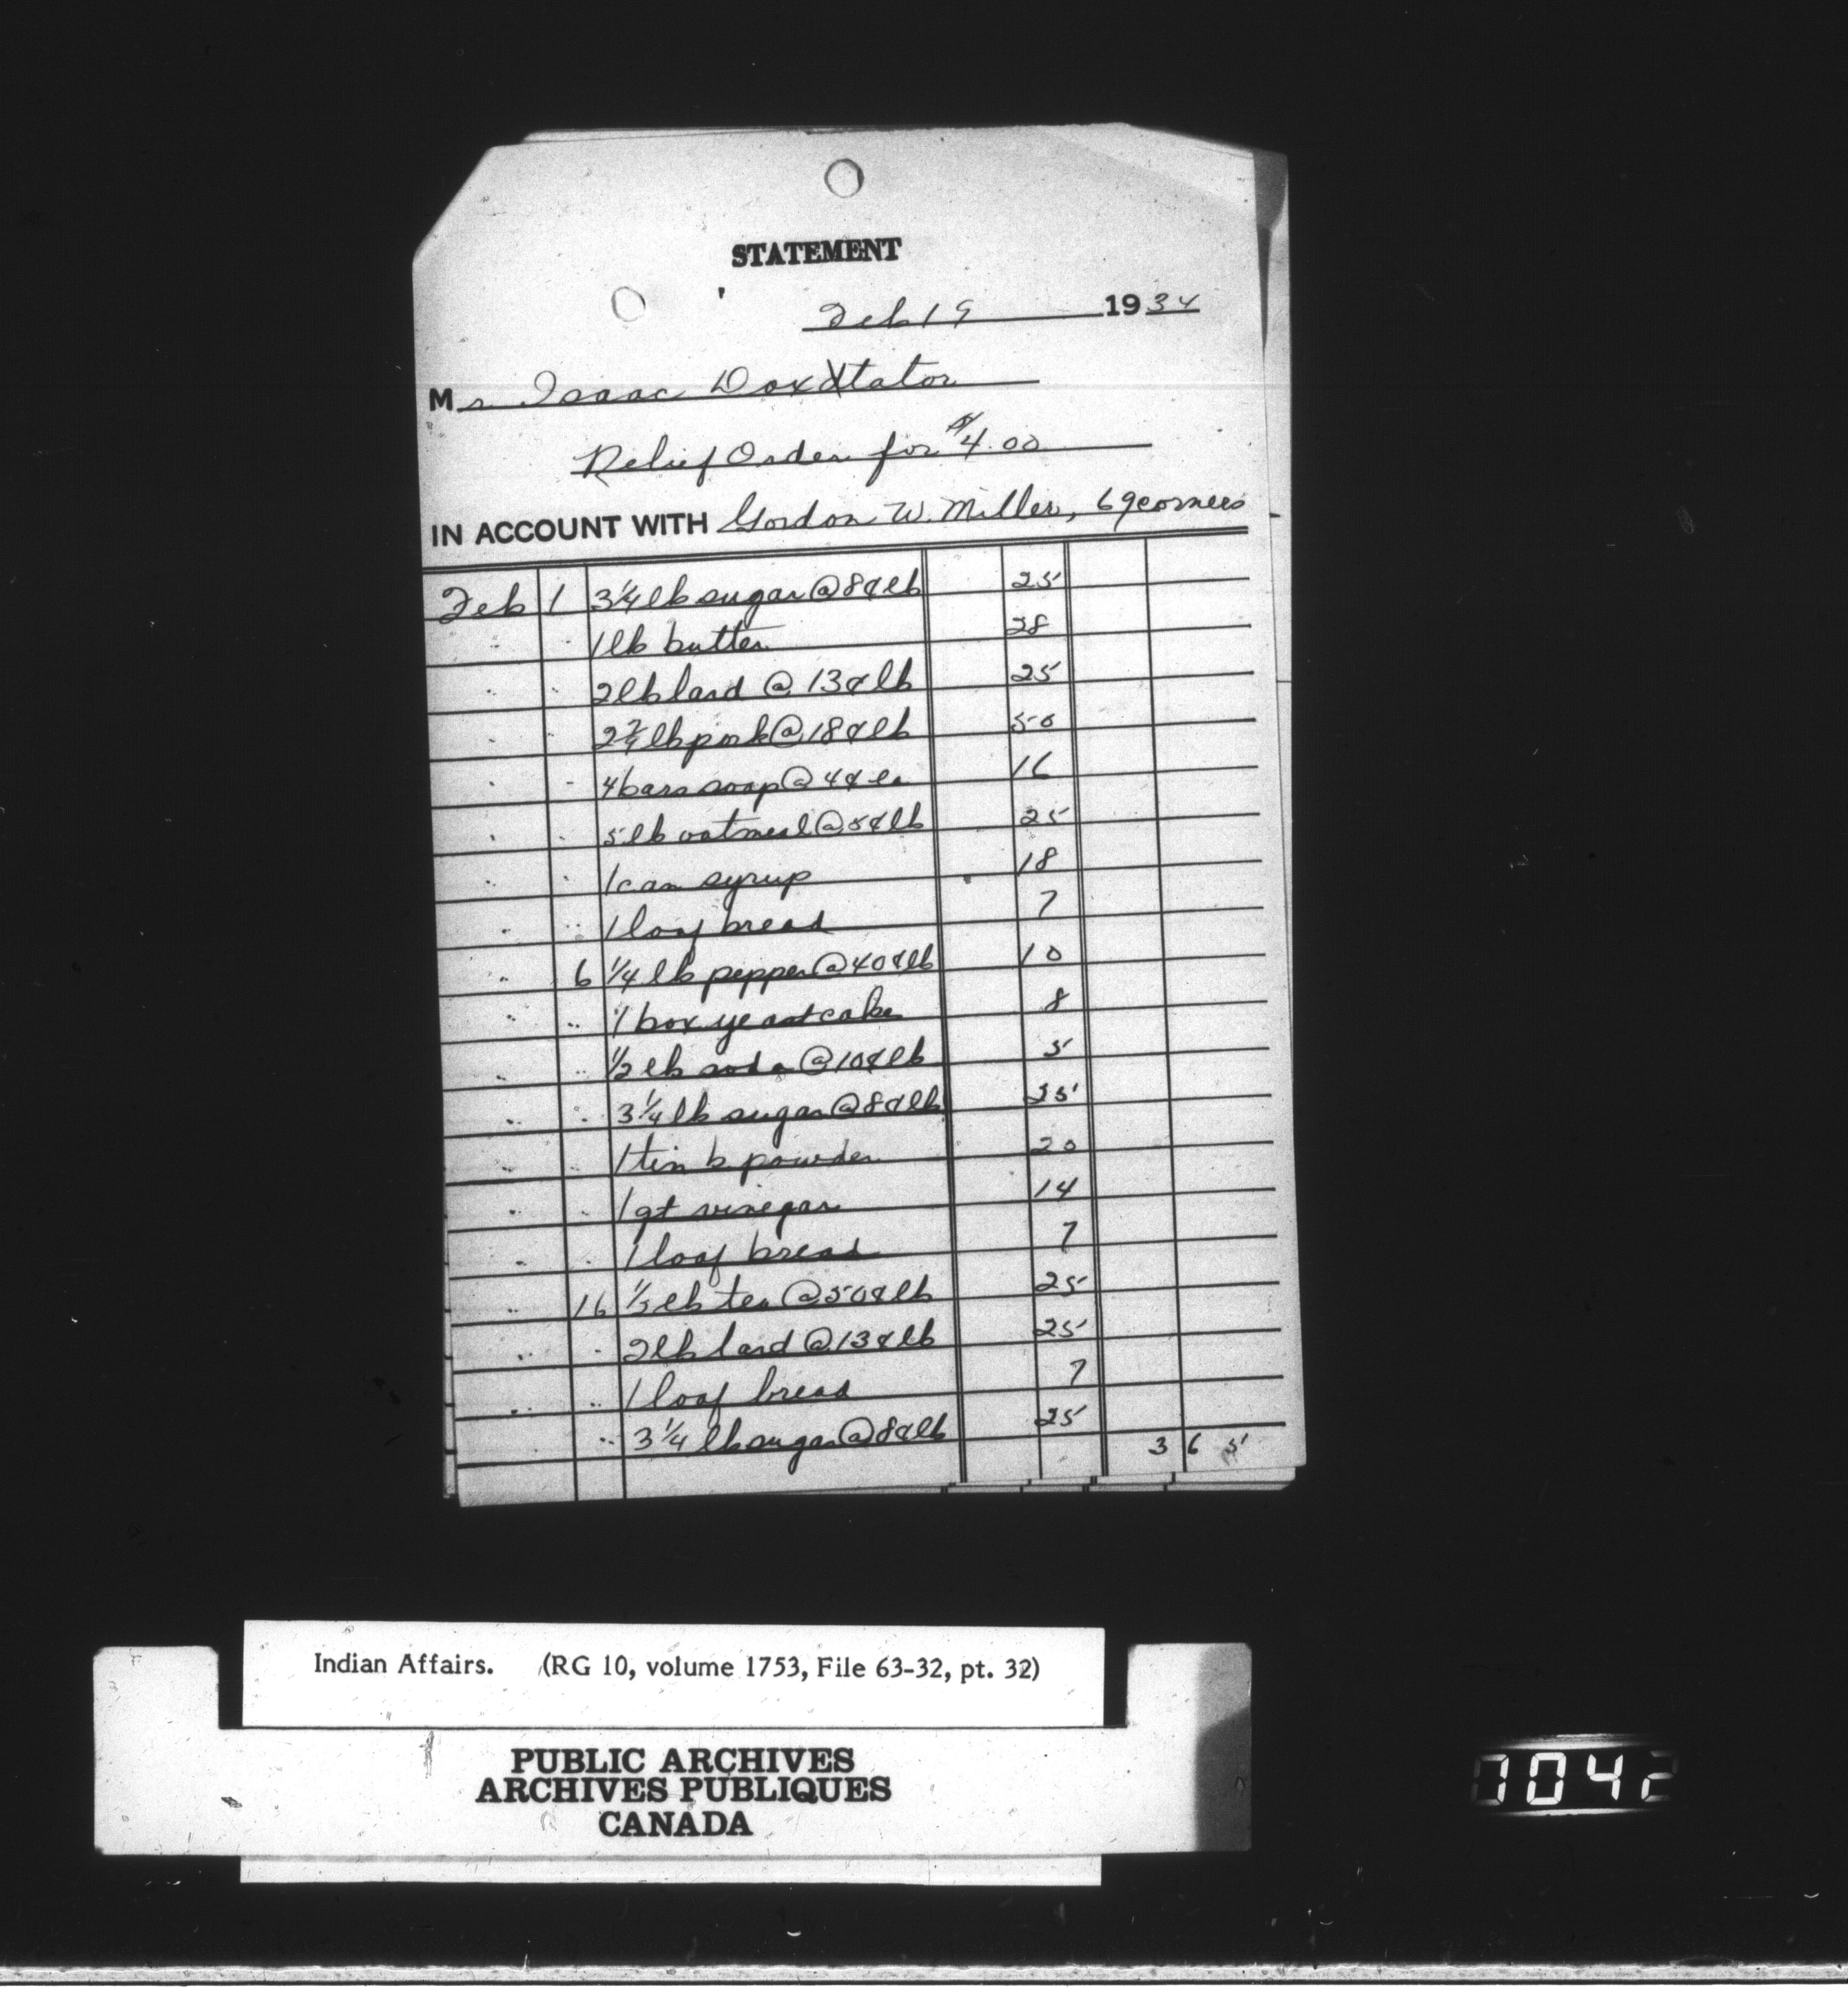 STATEMENT
Feb 19 1934
Mr Isaac Doxtator
Relief Order for $4.00
IN ACCOUNT WITH Gordon W. Miller, 69 corners
Feb 1 3 1/4 lb sugar @ 8¢ lb 25
" " 1 lb butter 28
" " 2 lb lard @ 13¢ lb 25
" " lb pork @ 18¢ lb 50
" " 4 bars soap @ 4¢ ea 16
" " 5 lb oatmeal @ 5¢ lb 25
" " 1 can syrup 18
" " 1 loaf bread 7
" 6 1/4 lb pepper @ 40¢ lb 10
" " 1 box yeastcake 8
" " 1/2 lb soda @ 10¢ lb 5
" " 3 1/4 lb sugar @ 8¢ lb 25
" " 1 tin b. powder 20
" " 1 qt vinegar 14
" " 1 loaf bread 7
" 16 1/2 lb tea @ 50¢ lb 25
" " 2 lb lard @ 13¢ lb 25
" " 1 loaf bread 7
" 3 1/4 lb sugar @ 8¢ lb 25
3 65
Indian Affairs. (RG 10, volume 1753, File 63-32, pt. 32)
PUBLIC ARCHIVES
ARCHIVES PUBLIQUES
CANADA
1042